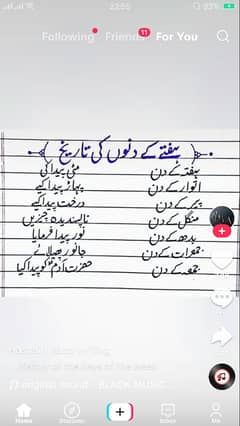 22:55
93%
Following
Friends
11
For You
ہفتے کے دنوں کی تاریخ
ہفتہ کے دن مٹی پیدا کی
اتوار کے دن پہاڑ پیدا کیے
پیر کے دن درخت پیدا کیے
منگل کے دن ناپسندیدہ چیزیں
بدھ کے دن نور پیدا فرمایا
جمعرات کے دن جانور پھیلائے
جمعہ کے دن حضرت آدمؑ کو پیدا کیا
of the days of the week
BLACK MUSIC
Home
Discover
Inbox
Me